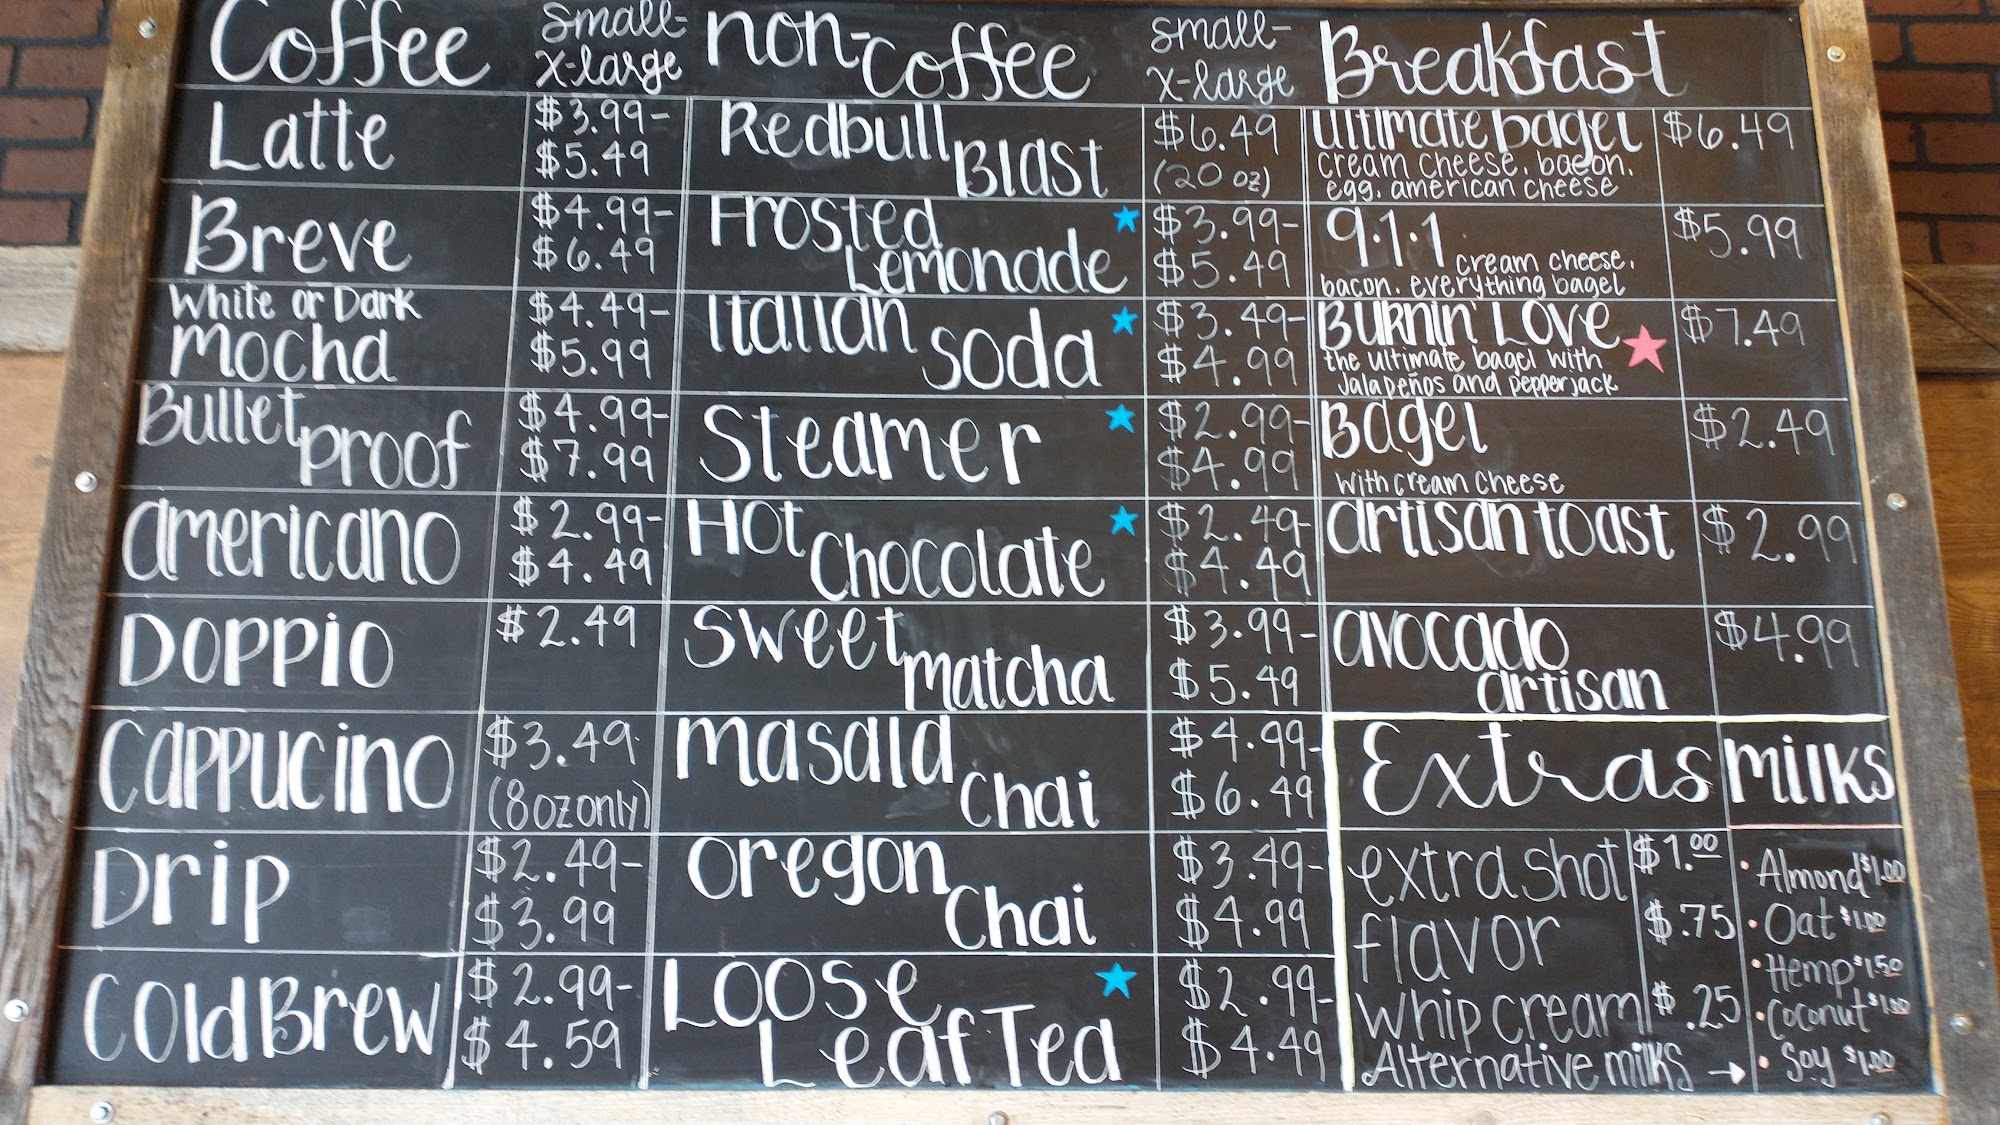 Coffee small-
x-large
Latte $3.99-
$5.49
Breve $4.99-
$6.49
White or Dark $4.49-
mocha $5.99
Bullet $4.99-
proof $7.99
americano $2.99-
$4.49
Doppio $2.49
Cappucino $3.49
(8oz only)
Drip $2.49-
$3.99
Cold Brew $2.99-
$4.59
non- small-
coffee x-large
Redbull $6.49
Blast (20 oz)
Frosted $3.99-
Lemonade $5.49
Italian $3.49-
soda $4.99
Steamer $2.99-
$4.99
Hot $2.49-
Chocolate $4.49
Sweet $3.99-
matcha $5.49
masala $4.99-
Chai $6.49
oregon $3.49-
Chai $4.99
Loose $2.99-
Leaf Tea $4.49
Breakfast
ultimate bagel $6.49
cream cheese, bacon,
egg, american cheese
9.1.1 $5.99
cream cheese,
bacon, everything bagel
Burnin' Love $7.49
the ultimate bagel with
Jalapeños and pepperjack
Bagel $2.49
with cream cheese
artisan toast $2.99
avocado $4.99
artisan
Extras
extra shot $1.00
flavor $.75
whip cream $.25
Alternative milks →
milks
• Almond $1.00
• Oat $1.00
• Hemp $1.50
• Coconut $1.00
• Soy $1.00